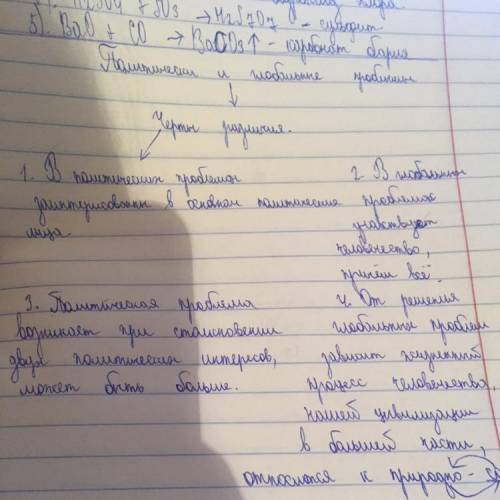 5). BaO + CO → BaCO3↑ - карбонат бария
Политические и глобальные проблемы
Черты различия.
1. В политических проблемах
заинтересованы в основном политические
лица.
2. В глобальных
проблемах
участвует
человечество,
причём всё.
3. Политическая проблема
возникает при столкновении
двух политических интересов,
может быть больше.
4. От решения
глобальных проблем
зависит
процесс человечества,
нашей цивилизации
в большей части,
относится к природно-